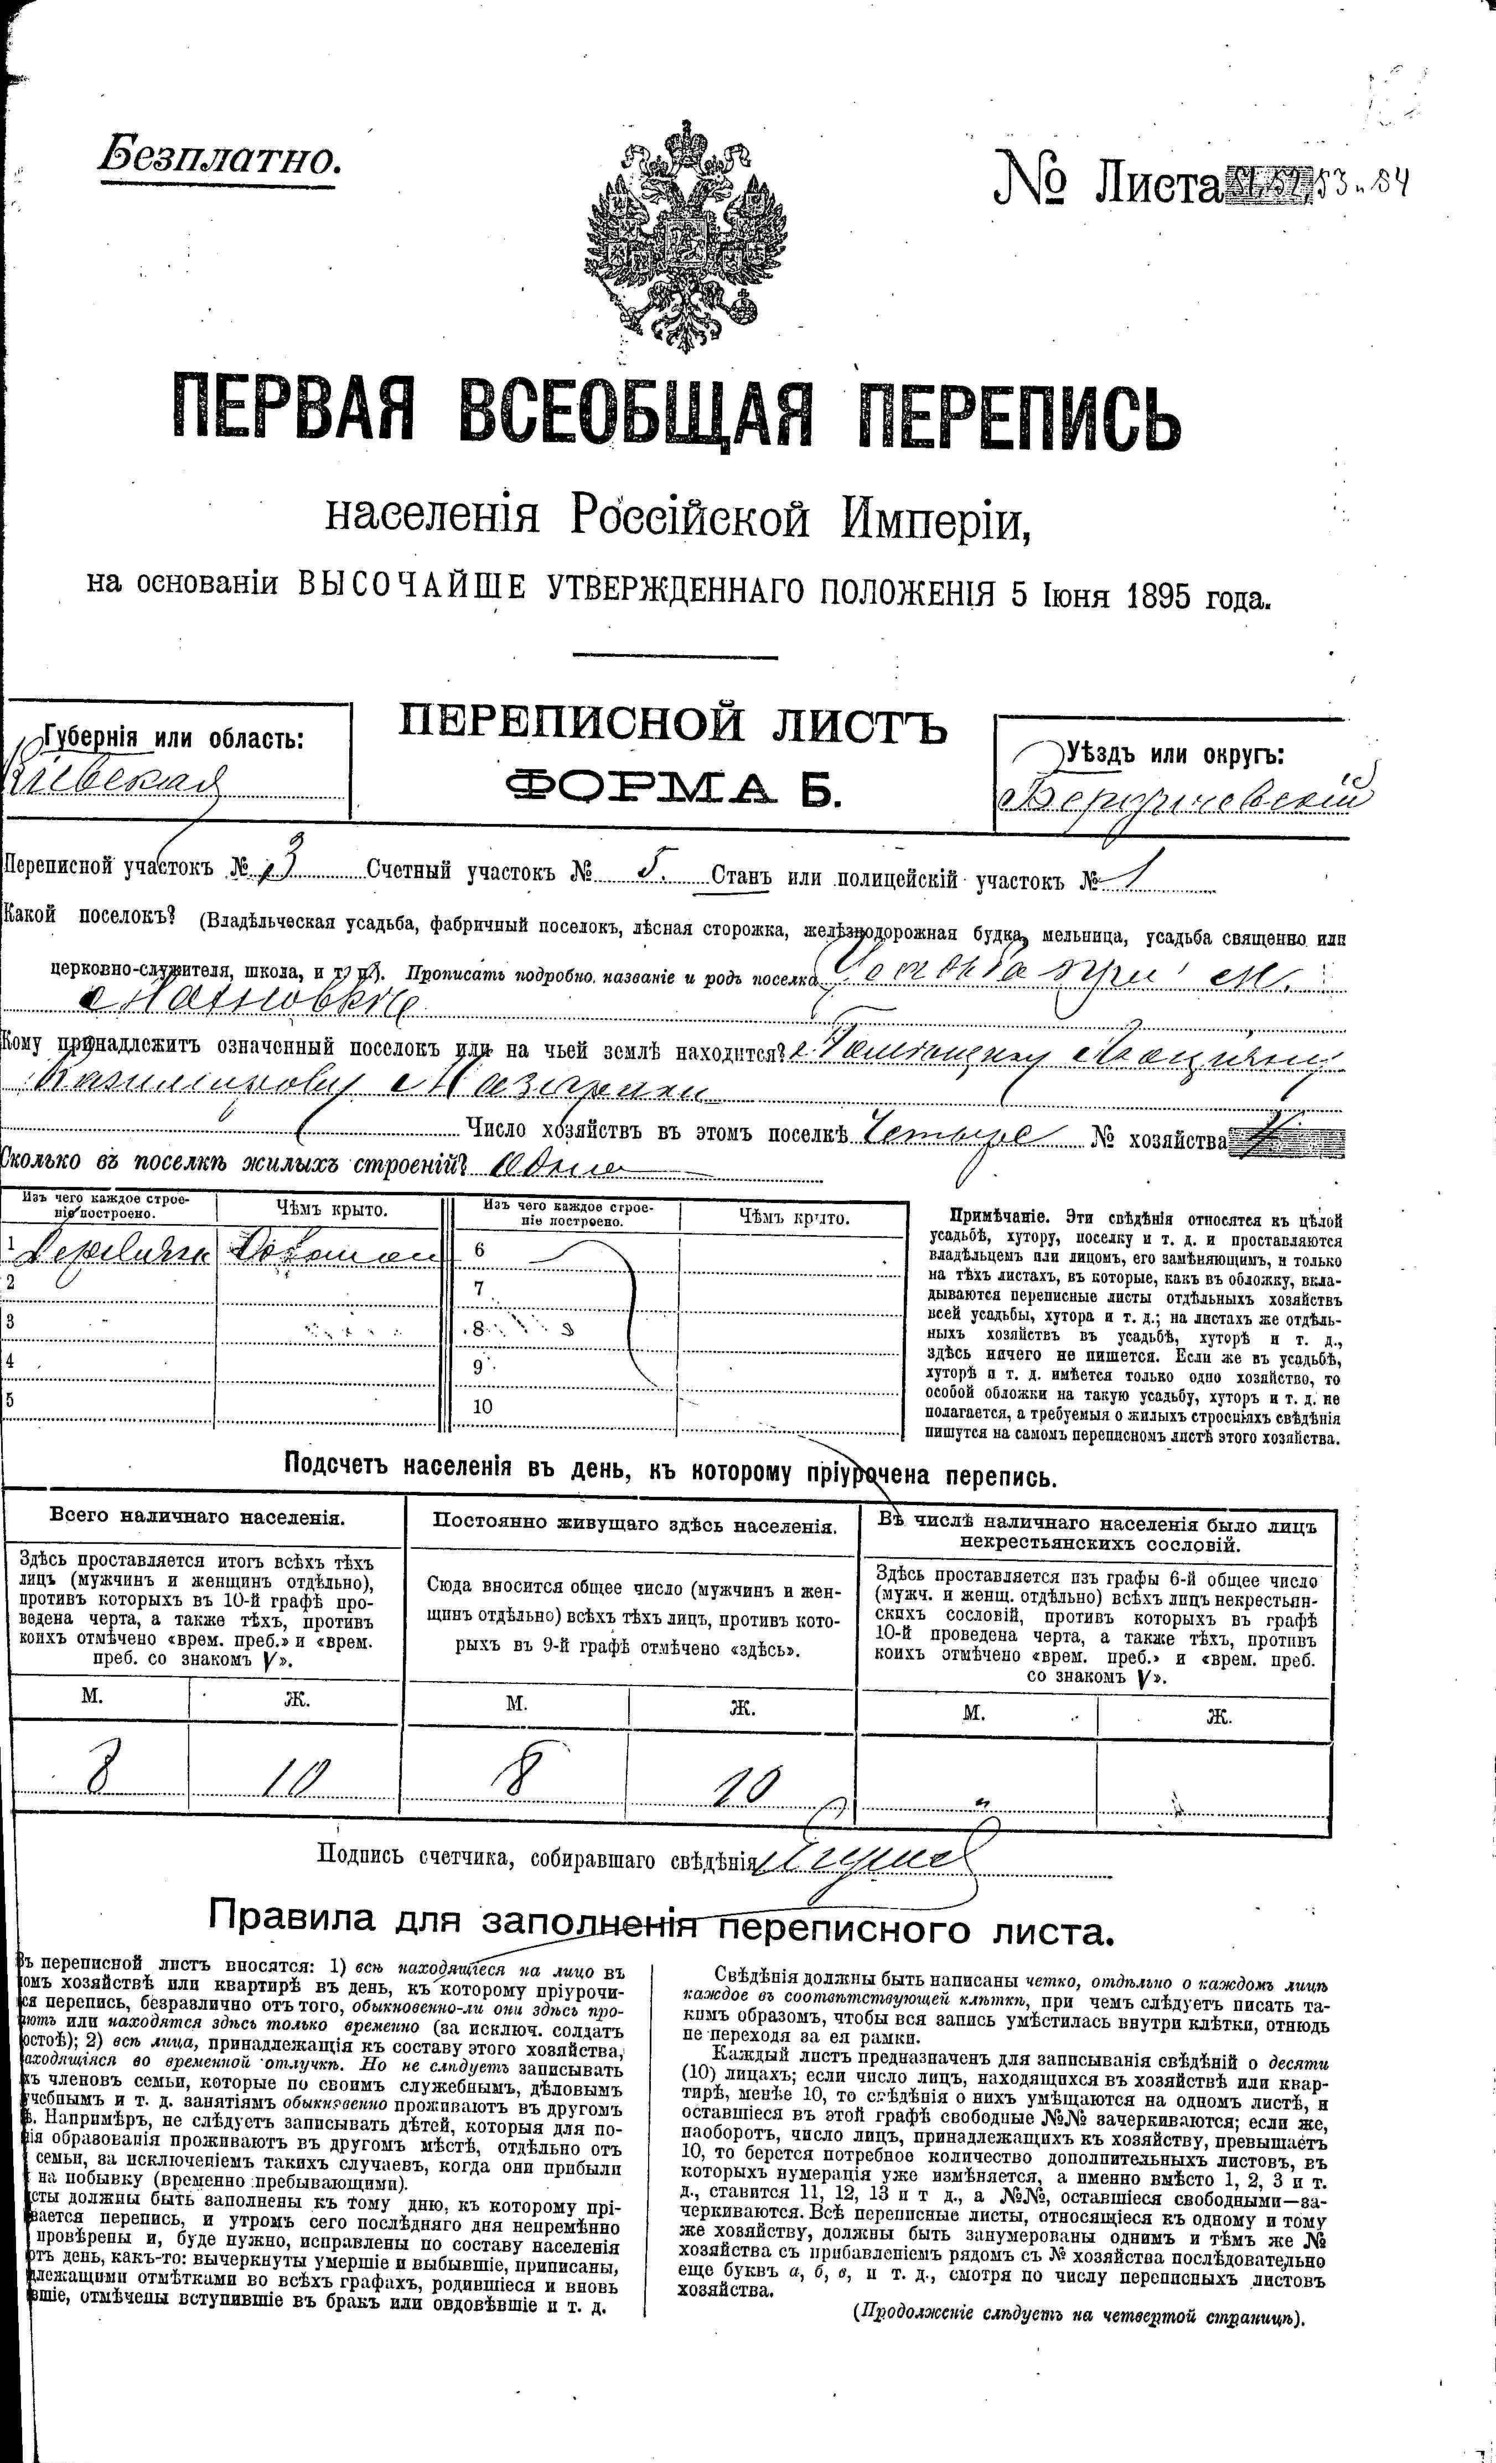 Безплатно.
№ Листа 53 и 54
ПЕРВАЯ ВСЕОБЩАЯ ПЕРЕПИСЬ
населенія Россійской Имперіи,
на основаніи ВЫСОЧАЙШЕ УТВЕРЖДЕННАГО ПОЛОЖЕНІЯ 5 Іюня 1895 года.
Губернія или область:
Кіевская
ПЕРЕПИСНОЙ ЛИСТЪ
ФОРМА Б.
Уѣздъ или округъ:
Бердичевскій
Переписной участокъ № 3 Счетный участокъ № 5. Станъ или полицейскій участокъ № 1
Какой поселокъ? (Владѣльческая усадьба, фабричный поселокъ, лѣсная сторожка, желѣзнодорожная будка, мельница, усадьба священно или
церковно-служителя, школа, и т. д.). Прописать подробно, названіе и родъ поселка Усадьба при м.
Махновкѣ
Кому принадлежитъ означенный поселокъ или на чьей землѣ находится?
Казимирову Мазараки
Число хозяйствъ въ этомъ поселкѣ Четыре № хозяйства
Сколько въ поселкѣ жилыхъ строеній? Одно
Изъ чего каждое строе-
ніе построено.
Чѣмъ крыто.
Изъ чего каждое строе-
ніе построено.
Чѣмъ крыто.
1 6
2 7
3 8
4 9
5 10
Примѣчаніе. Эти свѣдѣнія относятся къ цѣлой
усадьбѣ, хутору, поселку и т. д. и проставляются
владѣльцемъ или лицомъ, его замѣняющимъ, и только
на тѣхъ листахъ, въ которые, какъ въ обложку, вкла-
дываются переписные листы отдѣльныхъ хозяйствъ
всей усадьбы, хутора и т. д.; на листахъ же отдѣль-
ныхъ хозяйствъ въ усадьбѣ, хуторѣ и т. д.,
здѣсь ничего не пишется. Если же въ усадьбѣ,
хуторѣ и т. д. имѣется только одно хозяйство, то
особой обложки на такую усадьбу, хуторъ и т. д. не
полагается, а требуемыя о жилыхъ строеніяхъ свѣдѣнія
пишутся на самомъ переписномъ листѣ этого хозяйства.
Подсчетъ населенія въ день, къ которому пріурочена перепись.
Всего наличнаго населенія.
Здѣсь проставляется итогъ всѣхъ тѣхъ
лицъ (мужчинъ и женщинъ отдѣльно),
противъ которыхъ въ 10-й графѣ про-
ведена черта, а также тѣхъ, противъ
коихъ отмѣчено «врем. преб.» и «врем.
преб. со знакомъ V».
Постоянно живущаго здѣсь населенія.
Сюда вносится общее число (мужчинъ и жен-
щинъ отдѣльно) всѣхъ тѣхъ лицъ, противъ кото-
рыхъ въ 9-й графѣ отмѣчено «здѣсь».
Въ числѣ наличнаго населенія было лицъ
некрестьянскихъ сословій.
Здѣсь проставляется изъ графы 6-й общее число
(мужч. и женщ. отдѣльно) всѣхъ лицъ некрестьян-
скихъ сословій, противъ которыхъ въ графѣ
10-й проведена черта, а также тѣхъ, противъ
коихъ отмѣчено «врем. преб.» и «врем. преб.
со знакомъ V».
М. Ж. М. Ж. М. Ж.
8 10 8 10 " "
Подпись счетчика, собиравшаго свѣдѣнія
Правила для заполненія переписного листа.
Въ переписной листъ вносятся: 1) всѣ находящіеся на лицо въ
омъ хозяйствѣ или квартирѣ въ день, къ которому пріурочи-
ся перепись, безразлично отъ того, обыкновенно-ли они здѣсь про-
ютъ или находятся здѣсь только временно (за исключ. солдатъ
остоѣ); 2) всѣ лица, принадлежащія къ составу этого хозяйства,
аходящіяся во временной отлучкѣ. Но не слѣдуетъ записывать
хъ членовъ семьи, которые по своимъ служебнымъ, дѣловымъ
чебнымъ и т. д. занятіямъ обыкновенно проживаютъ въ другомъ
ѣ. Напримѣръ, не слѣдуетъ записывать дѣтей, которыя для по-
ія образованія проживаютъ въ другомъ мѣстѣ, отдѣльно отъ
семьи, за исключеніемъ такихъ случаевъ, когда они прибыли
на побывку (временно пребывающими).
сты должны быть заполнены къ тому дню, къ которому прі-
вается перепись, и утромъ сего послѣдняго дня непремѣнно
провѣрены и, буде нужно, исправлены по составу населенія
отъ день, какъ-то: вычеркнуты умершіе и выбывшіе, приписаны,
длежащими отмѣтками во всѣхъ графахъ, родившіеся и вновь
вшіе, отмѣчены вступившіе въ бракъ или овдовѣвшіе и т. д.
Свѣдѣнія должны быть написаны четко, отдѣльно о каждомъ лицѣ
каждое въ соотвѣтствующей клѣткѣ, при чемъ слѣдуетъ писать та-
кимъ образомъ, чтобы вся запись умѣстилась внутри клѣтки, отнюдь
не переходя за ея рамки.
Каждый листъ предназначенъ для записыванія свѣдѣній о десяти
(10) лицахъ; если число лицъ, находящихся въ хозяйствѣ или квар-
тирѣ, менѣе 10, то свѣдѣнія о нихъ умѣщаются на одномъ листѣ, и
оставшіеся въ этой графѣ свободные №№ зачеркиваются; если же,
наоборотъ, число лицъ, принадлежащихъ къ хозяйству, превышаетъ
10, то берется потребное количество дополнительныхъ листовъ, въ
которыхъ нумерація уже измѣняется, а именно вмѣсто 1, 2, 3 и т.
д., ставится 11, 12, 13 и т д., а №№, оставшіеся свободными—за-
черкиваются. Всѣ переписные листы, относящіеся къ одному и тому
же хозяйству, должны быть занумерованы однимъ и тѣмъ же №
хозяйства съ прибавленіемъ рядомъ съ № хозяйства послѣдовательно
еще буквъ а, б, в, и т. д., смотря по числу переписныхъ листовъ
хозяйства.
(Продолженіе слѣдуетъ на четвертой страницѣ).